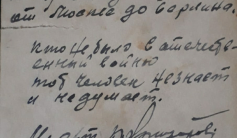 от Тюмени до Берлина.
кто не было в отечеще-
енний войню
тот человек не знает
и не думает.